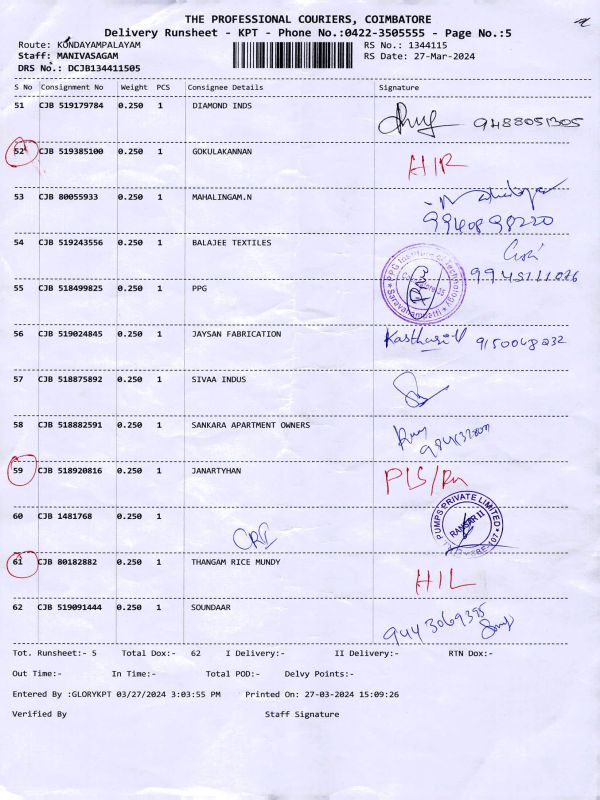 THE PROFESSIONAL COURIERS, COIMBATORE
Delivery Runsheet - KPT - Phone No.:0422-3505555 - Page No.:5
Route: KONDAYAMPALAYAM RS No.: 1344115
Staff: MANIVASAGAM RS Date: 27-Mar-2024
DRS No.: DCJB134411505
S No Consignment No Weight PCS Consignee Details Signature
51 CJB 519179784 0.250 1 DIAMOND INDS
9488051305
52 CJB 519385100 0.250 1 GOKULAKANNAN
53 CJB 80055933 0.250 1 MAHALINGAM.N
9940898220
54 CJB 519243556 0.250 1 BALAJEE TEXTILES
PPG Institute of Technology
Saravanampatti
55 CJB 518499825 0.250 1 PPG
56 CJB 519024845 0.250 1 JAYSAN FABRICATION
9150048232
57 CJB 518875892 0.250 1 SIVAA INDUS
58 CJB 518882591 0.250 1 SANKARA APARTMENT OWNERS
59 CJB 518920816 0.250 1 JANARTYHAN
PUMPS PRIVATE LIMITED
60 CJB 1481768 0.250 1
CRI
61 CJB 80182882 0.250 1 THANGAM RICE MUNDY
HIL
62 CJB 519091444 0.250 1 SOUNDAAR
9443069395
Tot. Runsheet:- 5 Total Dox:- 62 I Delivery:- II Delivery:- RTN Dox:-
Out Time:- In Time:- Total POD:- Delvy Points:-
Entered By :GLORYKPT 03/27/2024 3:03:55 PM Printed On: 27-03-2024 15:09:26
Verified By Staff Signature